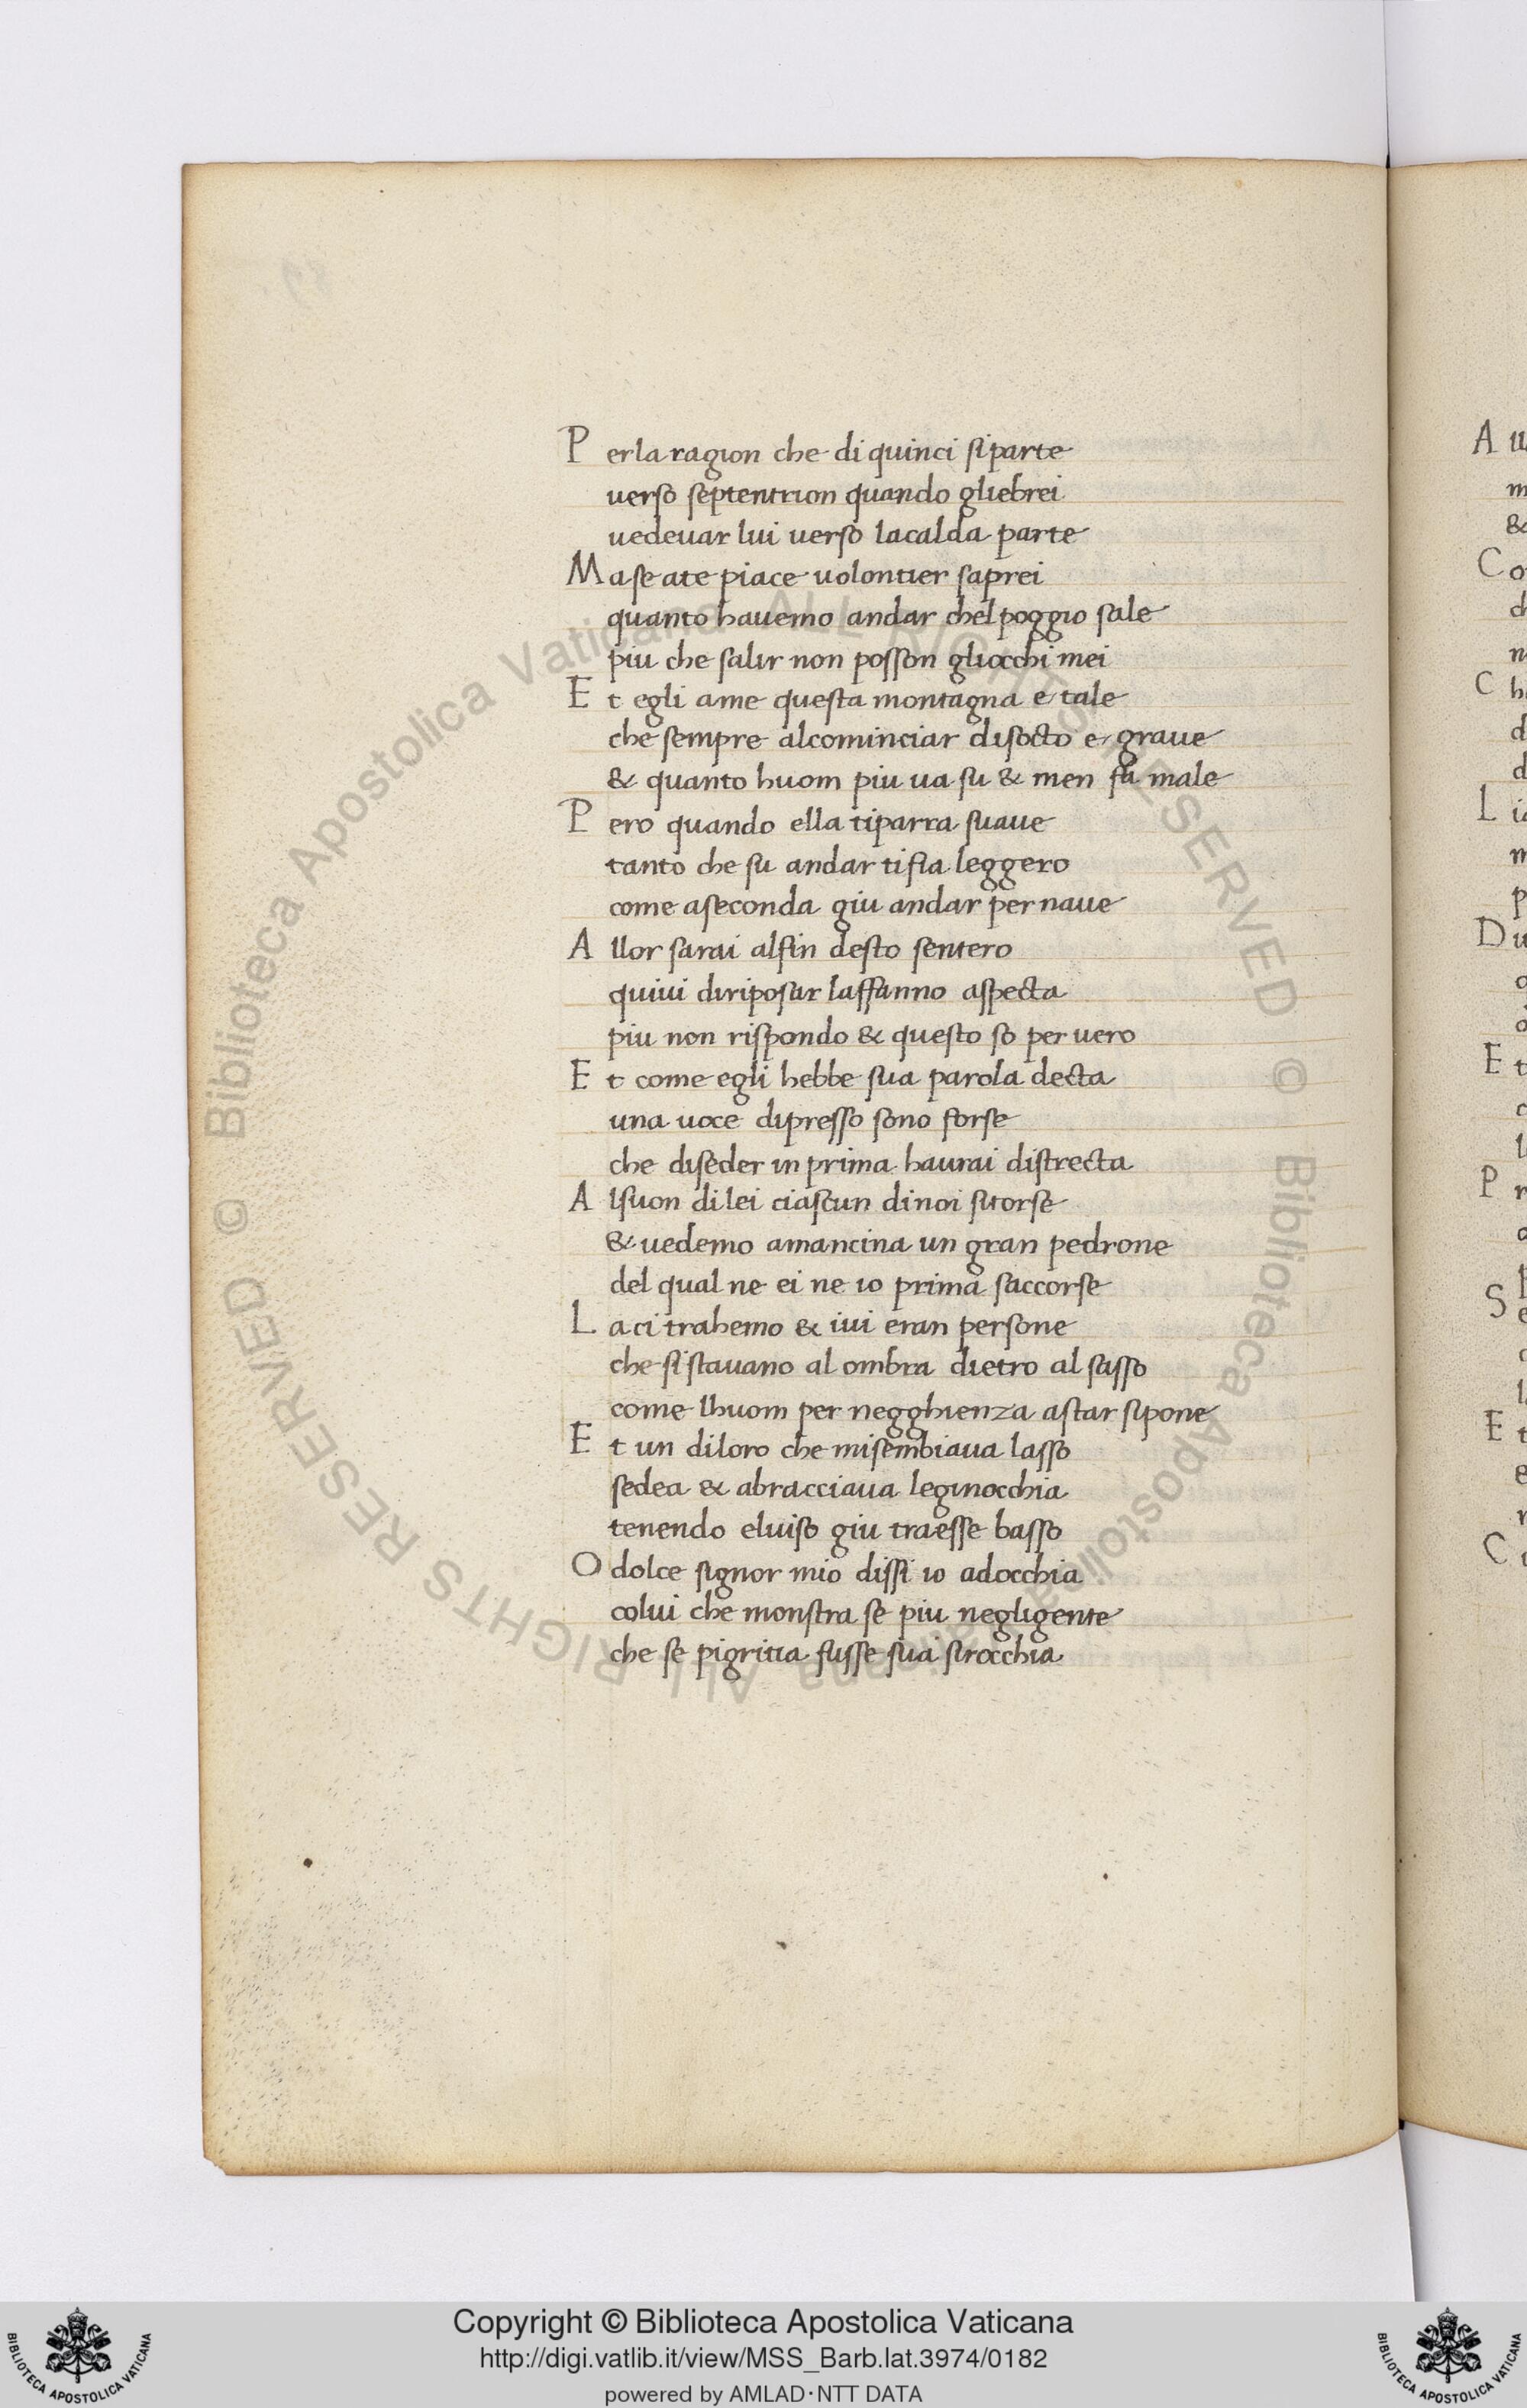 P erla ragion che di quinci si parte
uerso septentrion quando gliebrei
uedeuar lui uerso lacalda parte
M a se ate piace uolontier saprei
quanto hauemo andar chel poggio sale
piu che salir non posson gliocchi mei
E t egli ame questa montagna e tale
che sempre alcominciar disocto e graue
& quanto huom piu ua su & men fa male
P ero quando ella tiparra suaue
tanto che su andar tifia leggero
come aseconda giu andar per naue
A llor sarai alfin desto sentero
quiui diriposar laffanno aspecta
piu non rispondo & questo so per uero
E t come egli hebbe sua parola decta
una uoce dipresso sono forse
che diseder in prima haurai distrecta
A lsuon di lei ciascun dinoi sitorse
& uedemo amancina un gran pedrone
del qual ne ei ne io prima saccorse
L a ci trahemo & iui eran persone
che si stauano al ombra dietro al sasso
come lhuom per negghienza astar sipone
E t un diloro che misembiaua lasso
sedea & abracciaua leginocchia
tenendo eluiso giu traesse basso
O dolce signor mio dissi io adocchia
colui che monstra se piu negligente
che se pigritia fusse sua sirocchia
A ll
m
&
C o
ch
n
C h
d
d
L ia
m
p
D u
E t
c
P r
S e
E t
C
© Biblioteca Apostolica Vaticana ALL RIGHTS RESERVED © Biblioteca Apostolica Vaticana ALL RIGHTS RESERVED
BIBLIOTECA APOSTOLICA VATICANA
Copyright © Biblioteca Apostolica Vaticana
http://digi.vatlib.it/view/MSS_Barb.lat.3974/0182
powered by AMLAD·NTT DATA
BIBLIOTECA APOSTOLICA VATICANA